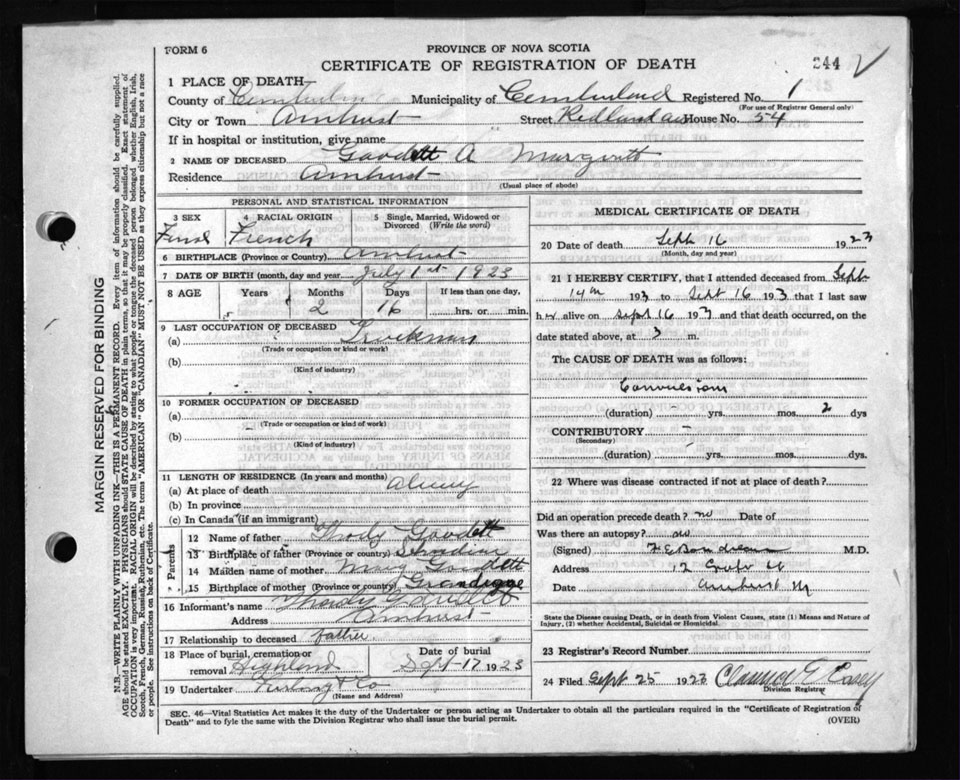 FORM 6
PROVINCE OF NOVA SCOTIA
CERTIFICATE OF REGISTRATION OF DEATH
244
1 PLACE OF DEATH—
County of Municipality of Cumberland Registered No. 1
(For use of Registrar General only)
City or Town Amherst Street House No. 54
If in hospital or institution, give name
2 NAME OF DECEASED Goodett A Margrett
Residence Amherst
(Usual place of abode)
PERSONAL AND STATISTICAL INFORMATION
3 SEX 4 RACIAL ORIGIN 5 Single, Married, Widowed or Divorced (Write the word)
French
6 BIRTHPLACE (Province or Country) Amherst
7 DATE OF BIRTH (month, day and year) July 1st 1923
8 AGE Years Months Days If less than one day,
2 16 ......hrs. or ......min.
9 LAST OCCUPATION OF DECEASED
(a)
(Trade or occupation or kind or work)
(b)
(Kind of industry)
10 FORMER OCCUPATION OF DECEASED
(a)
(Trade or occupation or kind or work)
(b)
(Kind of industry)
11 LENGTH OF RESIDENCE (In years and months)
(a) At place of death
(b) In province
(c) In Canada (if an immigrant)
Parents
12 Name of father Goodett
13 Birthplace of father (Province or country)
14 Maiden name of mother Mary Goodett
15 Birthplace of mother (Province or country) Grandigue
16 Informant's name
Address Amherst
17 Relationship to deceased father
18 Place of burial, cremation or removal Highland
Date of burial Sept 17 1923
19 Undertaker Furlong & Co
(Name and Address)
MEDICAL CERTIFICATE OF DEATH
20 Date of death Sept 16 1923
(Month, day and year)
21 I HEREBY CERTIFY, that I attended deceased from Sept
14th 193 to Sept 16 193 that I last saw
her alive on Sept 16 193 and that death occurred, on
date stated above, at 3 m.
The CAUSE OF DEATH was as follows:
Convulsions
(duration) - yrs. mos. 2 dys
CONTRIBUTORY -
(Secondary)
(duration) - yrs. mos. dys.
22 Where was disease contracted if not at place of death?
Did an operation precede death? no Date of
Was there an autopsy? no
(Signed) M.D.
Address 12
Date Amherst
State the Disease causing Death, or in death from Violent Causes, state (1) Means and Nature of Injury, (2) whether Accidental, Suicidal or Homicidal.
23 Registrar's Record Number
24 Filed Sept 25 1923
Division Registrar
SEC. 46—Vital Statistics Act makes it the duty of the Undertaker or person acting as Undertaker to obtain all the particulars required in the "Certificate of Registration of
Death" and to fyle the same with the Division Registrar who shall issue the burial permit.
(OVER)
MARGIN RESERVED FOR BINDING
N.B.—WRITE PLAINLY WITH UNFADING INK—THIS IS A PERMANENT RECORD. Every item of information should be carefully supplied.
AGE should be stated EXACTLY. PHYSICIANS should STATE CAUSE OF DEATH in plain terms, so that it may be properly classified. Exact statement of
OCCUPATION is very important. RACIAL ORIGIN will be described by stating to what people or tongue the deceased person belonged, whether English, Irish,
Scotch, French, German, Russian, Ruthenian, etc. The terms "AMERICAN" OR "CANADIAN" MUST NOT BE USED as they express citizenship but not a race
or people. See instructions on back of Certificate.